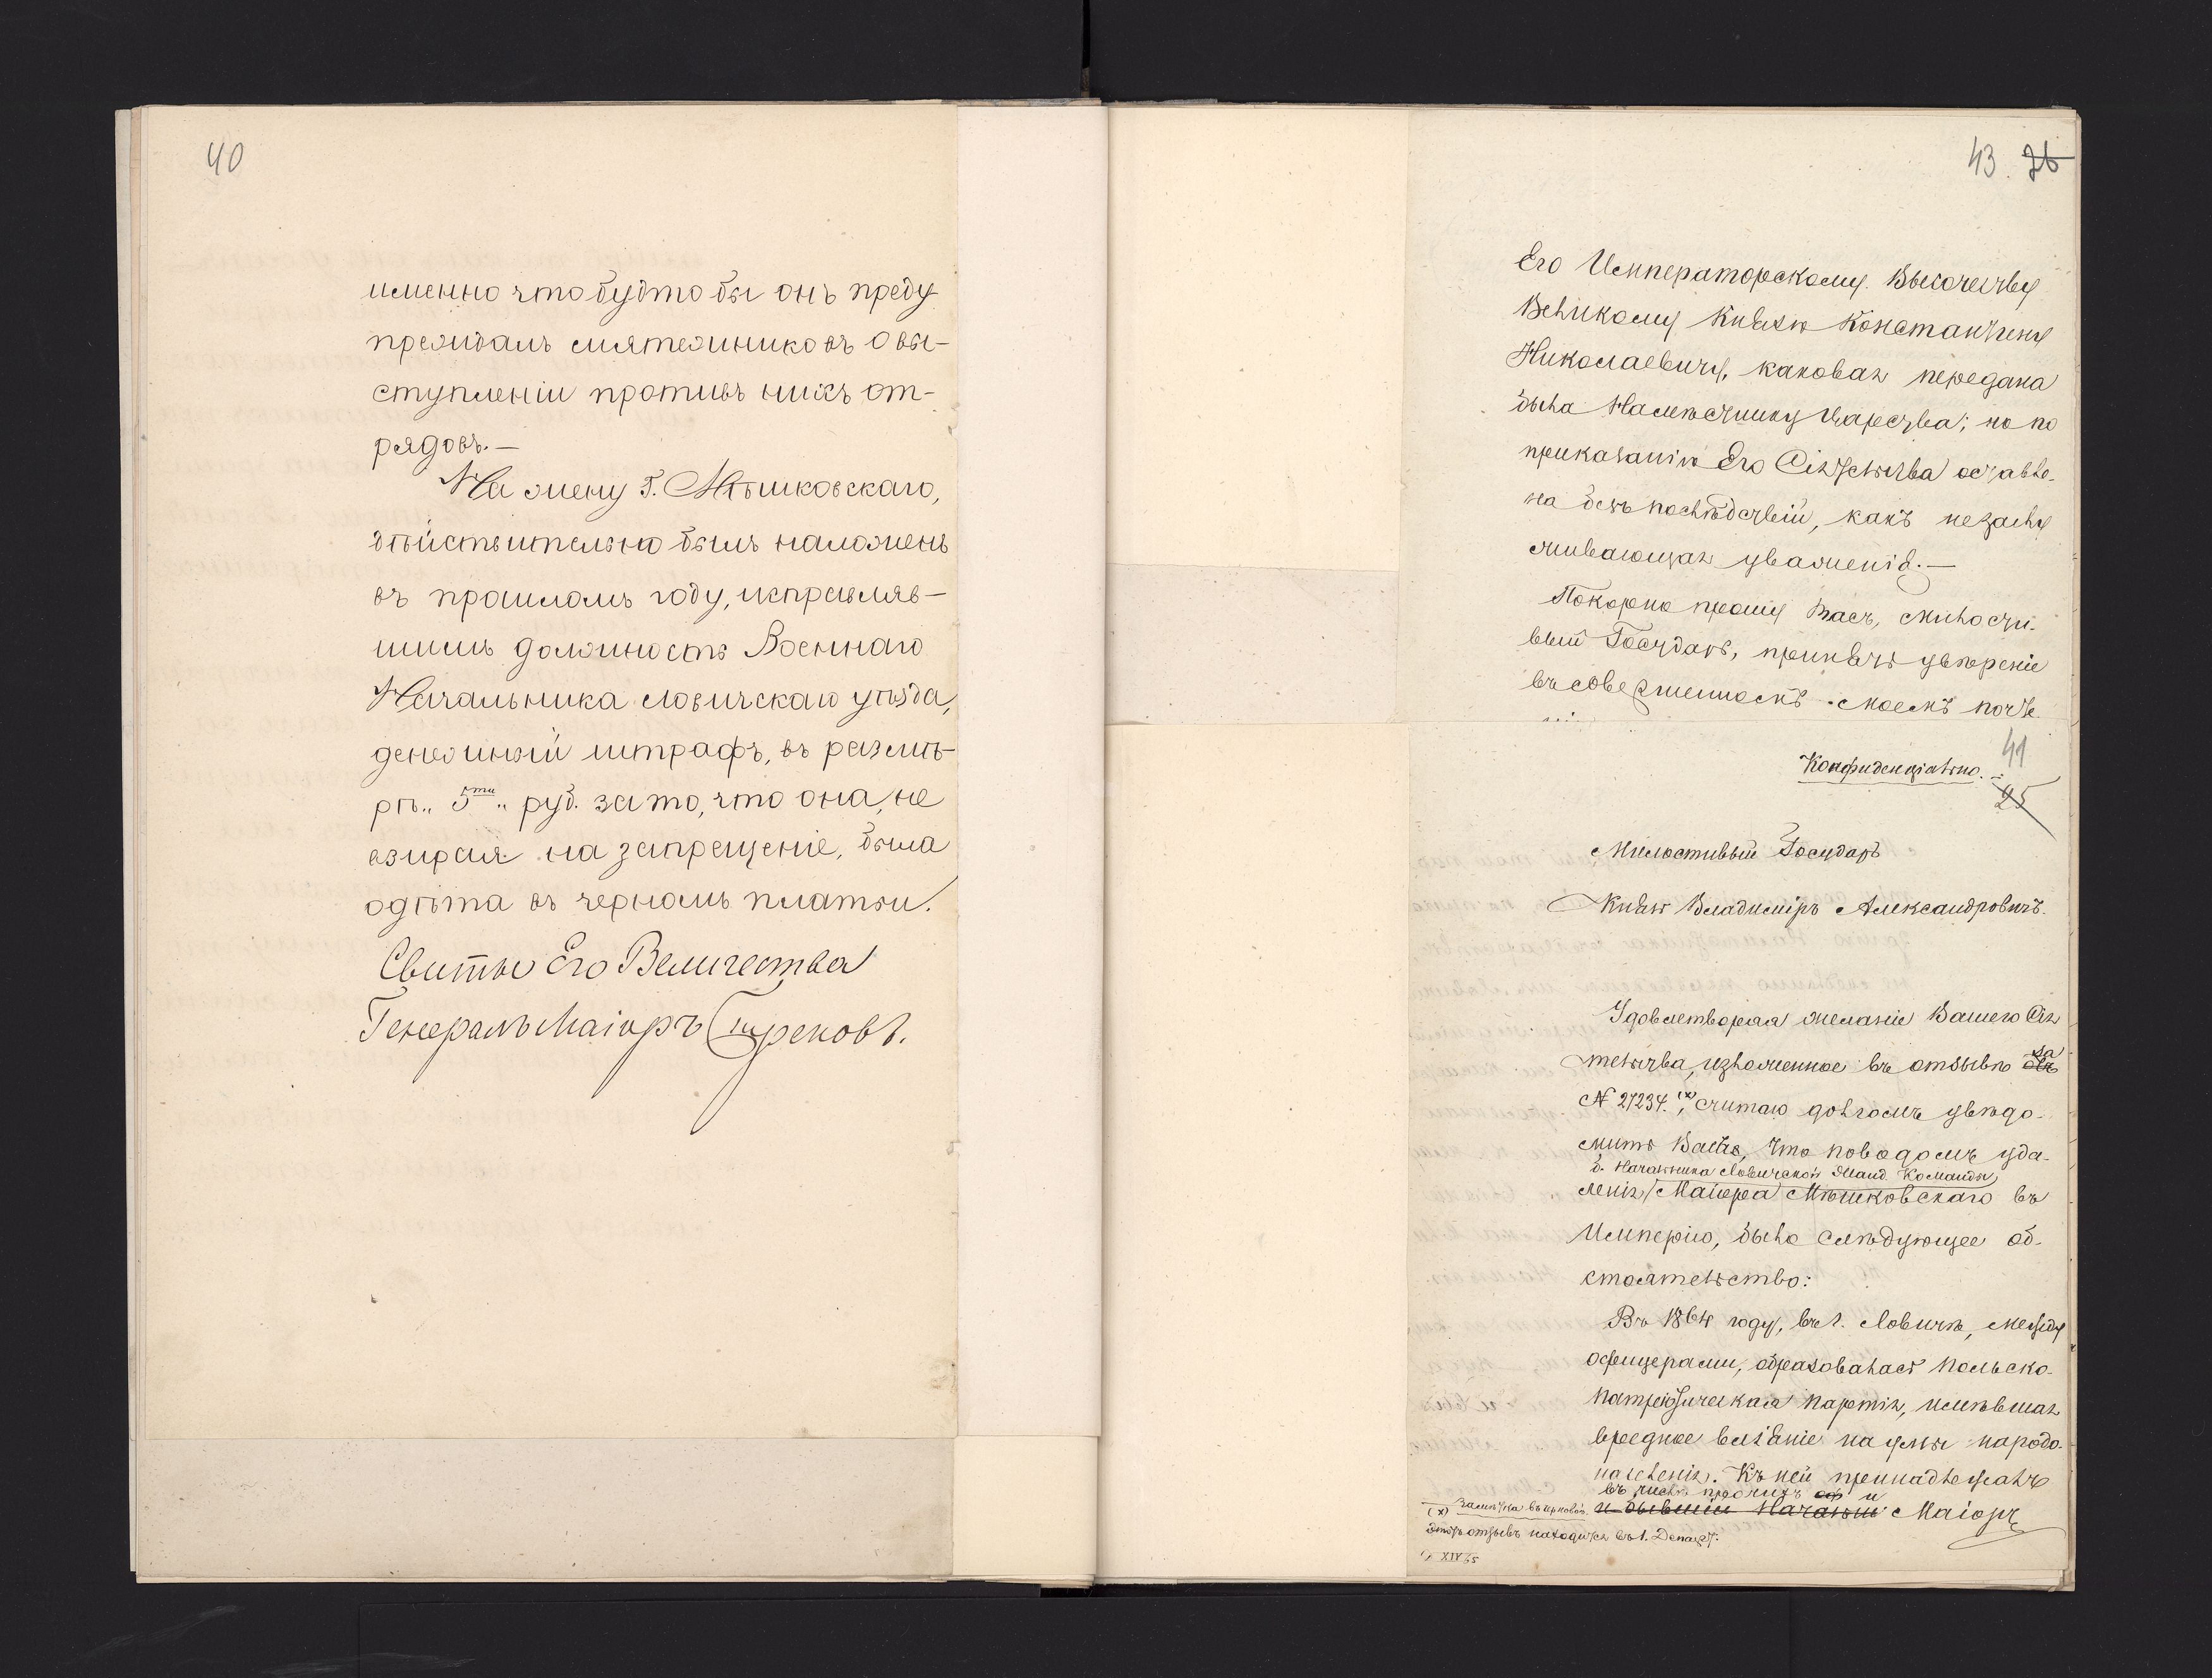 40
именно что будто бы онъ преду
преждалъ мятежниковъ о вы-
ступленіи противъ нихъ от-
рядовъ.—
На жену Г. Мѣшковскаго,
дѣйствительно былъ наложенъ
въ прошломъ году, исправляв-
шимъ должность Военнаго
Начальника Ловичскаго уѣзда,
денежный штрафъ, въ размѣ-
рѣ „5ти„ руб. за то, что она, не
взирая на запрещеніе, была
одѣта въ черномъ платьи.
Свиты Его Величества
Генералъ Маіоръ
43. 26
Его Императорскому Высочеству
Великому Князю Константину
Николаевичу, каковая передана
была Намѣстнику Царства; но по
приказанію Его Сіятельства оставле-
на безъ послѣдствій, какъ незаслу
живающая уваженія.—
Покорно прошу Васъ, Милости-
вый Государь, принять увѣреніе
въ совершенномъ моемъ почте
41
Конфиденціально.
25
Милостивый Государь
Князь Владиміръ Александровичъ.
Удовлетворяя желаніе Вашего Сія
тельства, изложенное въ отзывѣ за
№ 27234. (х), считаю долгомъ увѣдо-
мить Васъ, что поводомъ уда-
б. Начальника Ловичской Жанд. Команды
ленія Маіора Мѣшковскаго въ
Имперію, было слѣдующее об-
стоятельство:
Въ 1864 году, въ г. Ловичѣ, между
офицерами, образовалась Польско-
патріотическая партія, имѣвшая
вредное вліяніе на умы народо-
населенія. Къ ней принадлежалъ
въ числѣ прочихъ и
и бывшій Начальн Маіоръ
(х) Замѣтка
этотъ отзывъ находится въ 1. Департ.
XIV 65